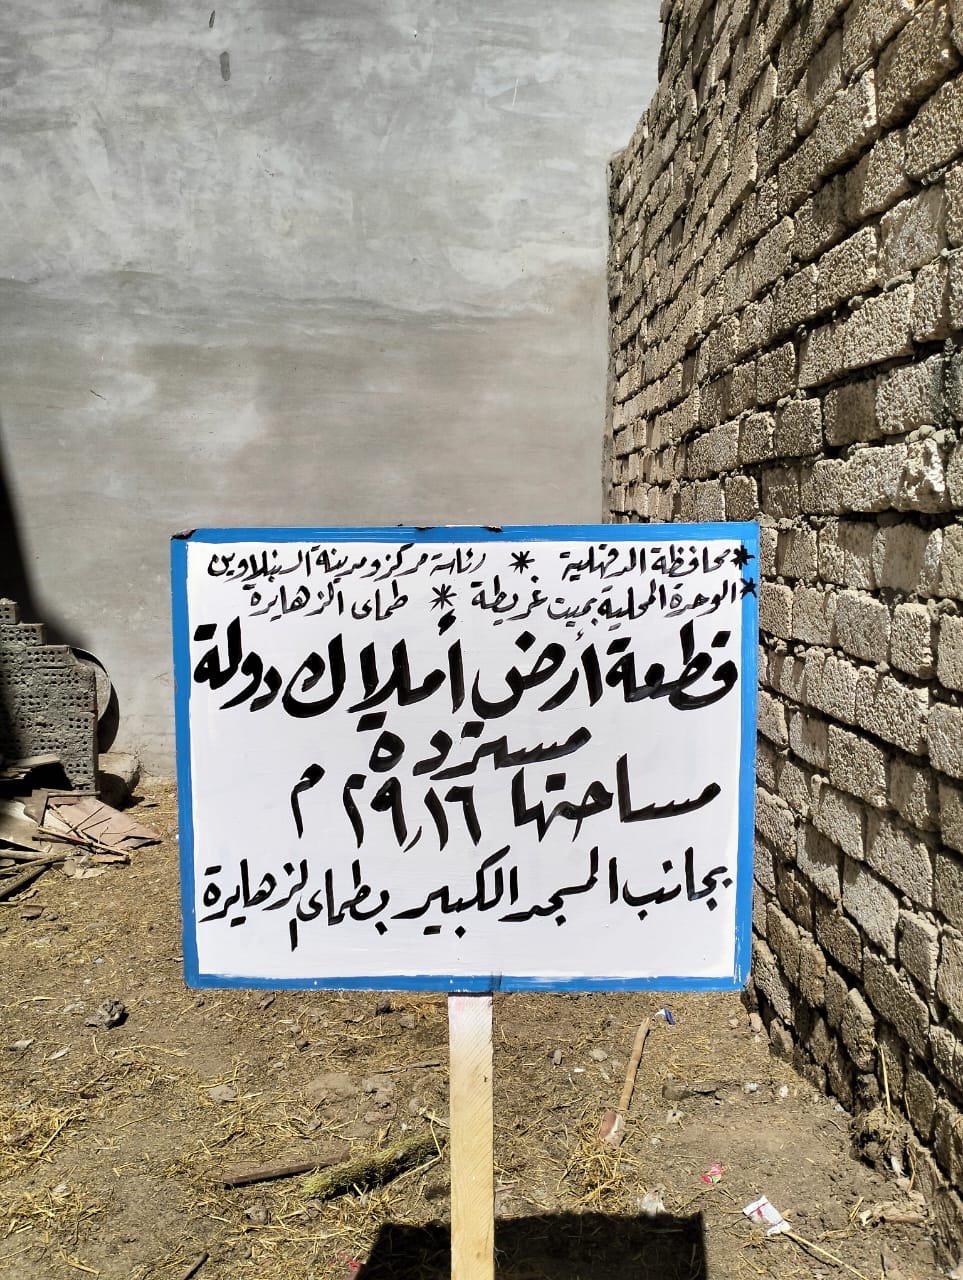 * محافظة الدقهلية * رئاسة مركز ومدينة السنبلاوين
* الوحدة المحلية بميت غريطة * طماى الزهايرة
قطعة أرض أملاك دولة
مستردة
مساحتها ٢٩,١٦ م
بجانب المسجد الكبير بطماى الزهايرة